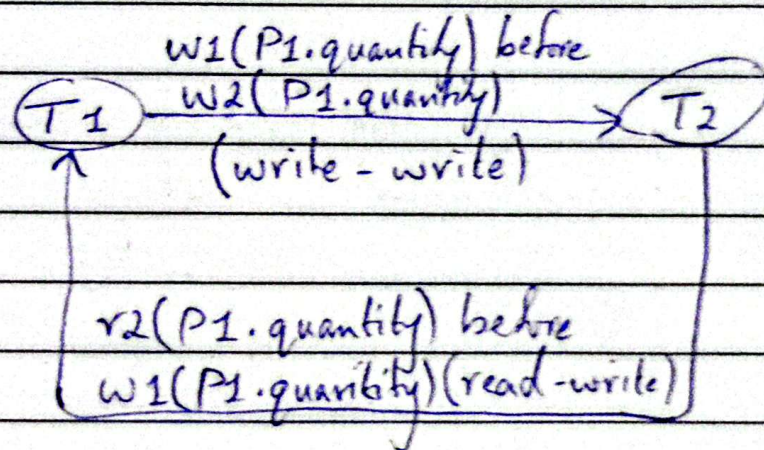 w1(P1.quantity) before
T1 w2(P1.quantity) T2
(write - write)
r2(P1.quantity) before
w1(P1.quantity)(read-write)